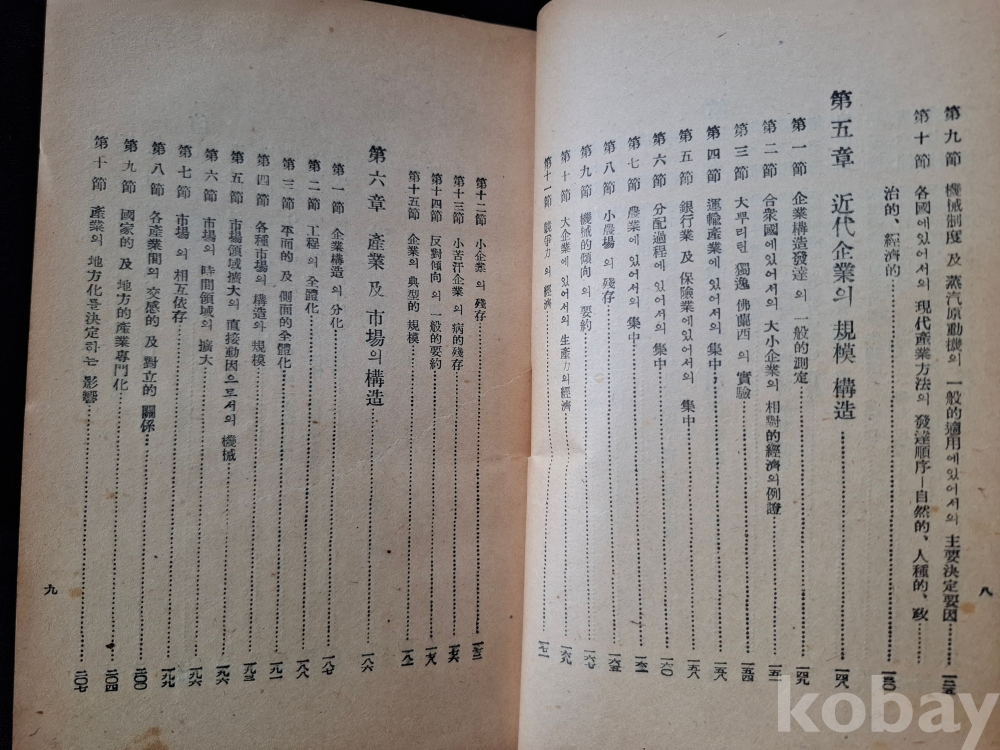 第九節 機械制度 及 蒸汽原動機의 一般的適用에있어서의 主要決定要因
第十節 各國에있어서의 現代產業方法의 發達順序—自然的、人種的、政
治的、經濟的 一三〇
第五章 近代企業의 規模 構造 一四八
第一節 企業構造發達 의 一般的測定 一四九
第二節 合衆國에있어서의 大小企業의 相對的經濟의例證 一五一
第三節 大뿌리턴 獨逸 佛蘭西 의 實驗 一五四
第四節 運輸產業에 있어서의 集中 一五八
第五節 銀行業 及 保險業에있어서 의 集中 一五八
第六節 分配過程에 있어서의 集中 一六〇
第七節 農業에 있어서의 集中
第八節 小農場의 殘存 一六五
第九節 機械的傾向의 要約 一六七
第十節 大企業에 있어서의 生產力의經濟 一六九
第十一節 競爭力 의 經濟 一七一
八
第十二節 小企業 의 殘存
第十三節 小苦汗企業 의 病的殘存 一七六
第十四節 反對傾向 의 一般的要約 一七九
第十五節 企業의 典型的 規模
第六章 產業 及 市場의 構造 一八六
第一節 企業構造 의 分化 一八七
第二節 工程의 全體化 一八八
第三節 平面的 及 側面的全體化 一九一
第四節 各種市場의 構造와 規模
第五節 市場領域擴大의 直接動因으로서의 機械
第六節 市場의 時間領域의 擴大 一九六
第七節 市場 의 相互依存 一九九
第八節 各產業間의 交感的 及 對立的 關係 二〇〇
第九節 國家的 及 地方的產業專門化 二〇四
第十節 產業의 地方化를決定하는 影響 二〇七
九
kobay